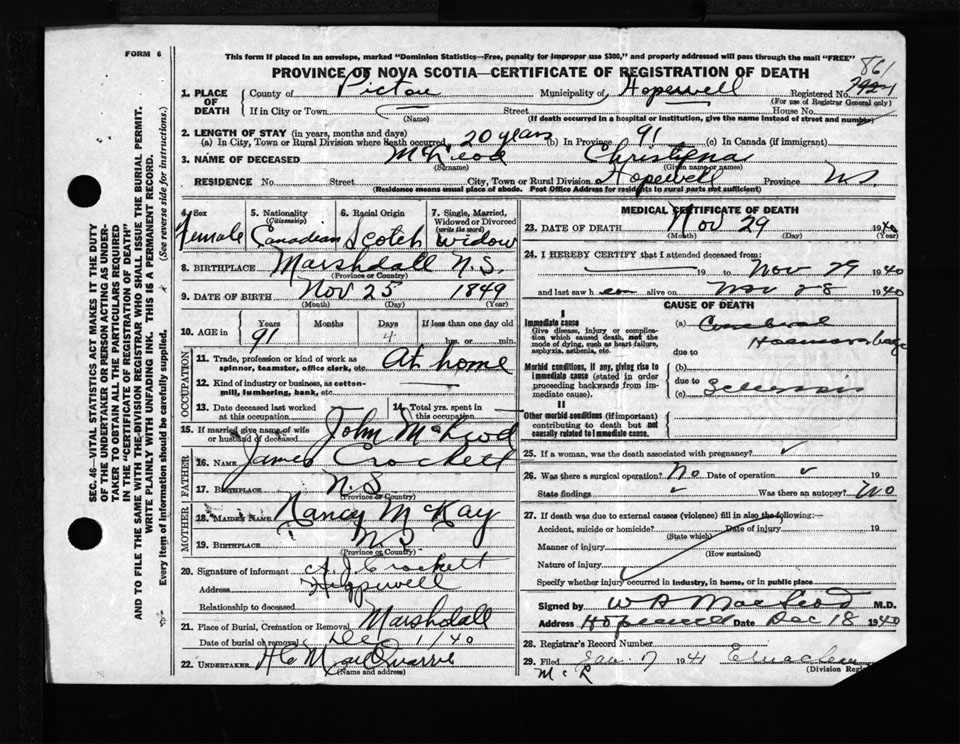 FORM 6
This form if placed in an envelope, marked "Dominion Statistics—Free, penalty for improper use $300," and properly addressed will pass through the mail "FREE"
PROVINCE OF NOVA SCOTIA—CERTIFICATE OF REGISTRATION OF DEATH
861
1. PLACE OF DEATH
County of Pictou Municipality of Hopewell Registered No.
(For use of Registrar General only)
If in City or Town Street House No.
(Name) (If death occurred in a hospital or institution, give the name instead of street and number)
2. LENGTH OF STAY (in years, months and days)
(a) In City, Town or Rural Division where death occurred 20 years (b) In Province 91 (c) In Canada (if immigrant)
3. NAME OF DECEASED McLeod Christena
(Surname) (Given name or names)
RESIDENCE No. Street City, Town or Rural Division Hopewell Province N.S.
(Residence means usual place of abode. Post Office Address for residents in rural parts not sufficient)
4. Sex Female
5. Nationality (Citizenship) Canadian
6. Racial Origin Scotch
7. Single, Married, Widowed or Divorced (write the word) Widow
8. BIRTHPLACE Marshdall N.S.
(Province or Country)
9. DATE OF BIRTH Nov 25 1849
(Month) (Day) (Year)
10. AGE in Years Months Days If less than one day old
91 4 hrs. or min.
OCCUPATION
11. Trade, profession or kind of work as spinner, teamster, office clerk, etc. At home
12. Kind of industry or business, as cotton-mill, lumbering, bank, etc.
13. Date deceased last worked at this occupation
14. Total yrs. spent in this occupation
15. If married give name of wife or husband of deceased John McLeod
FATHER
16. NAME James Crockett
17. Birthplace N.S.
(Province or Country)
MOTHER
18. Maiden Name Nancy McKay
19. BIRTHPLACE N.S.
(Province or Country)
20. Signature of informant A. J. Crockett
Address Hopewell
Relationship to deceased
21. Place of Burial, Cremation or Removal Marshdall
Date of burial or removal Dec 1/40
22. UNDERTAKER MacQuarrie
(Name and address)
MEDICAL CERTIFICATE OF DEATH
23. DATE OF DEATH Nov 29 1940
(Month) (Day) (Year)
24. I HEREBY CERTIFY that I attended deceased from:
19 to Nov 29 1940
and last saw h er alive on Nov 28 1940
CAUSE OF DEATH
I
Immediate cause
Give disease, injury or complication which caused death, not the mode of dying, such as heart failure, asphyxia, asthenia, etc.
(a) Cerebral Haemorrhage
due to
Morbid conditions, if any, giving rise to immediate cause (stated in order proceeding backwards from immediate cause).
(b)
due to
(c) Sclerosis
II
Other morbid conditions (if important) contributing to death but not causally related to immediate cause.
25. If a woman, was the death associated with pregnancy? ✓
26. Was there a surgical operation? No Date of operation ✓ 19
State findings ✓ Was there an autopsy? No
27. If death was due to external causes (violence) fill in also the following:
Accident, suicide or homicide? Date of injury 19
(State which)
Manner of injury
(How sustained)
Nature of injury
Specify whether injury occurred in industry, in home, or in public place
Signed by W A MacLeod M.D.
Address Hopewell Date Dec 18 1940
28. Registrar's Record Number
29. Filed Jan. 7 1941
(Division Regist
SEC. 46—VITAL STATISTICS ACT MAKES IT THE DUTY
OF THE UNDERTAKER OR PERSON ACTING AS UNDER-
TAKER TO OBTAIN ALL THE PARTICULARS REQUIRED
IN THE "CERTIFICATE OF REGISTRATION OF DEATH"
AND TO FILE THE SAME WITH THE DIVISION REGISTRAR WHO SHALL ISSUE THE BURIAL PERMIT.
WRITE PLAINLY WITH UNFADING INK. THIS IS A PERMANENT RECORD.
Every item of information should be carefully supplied. (See reverse side for instructions.)